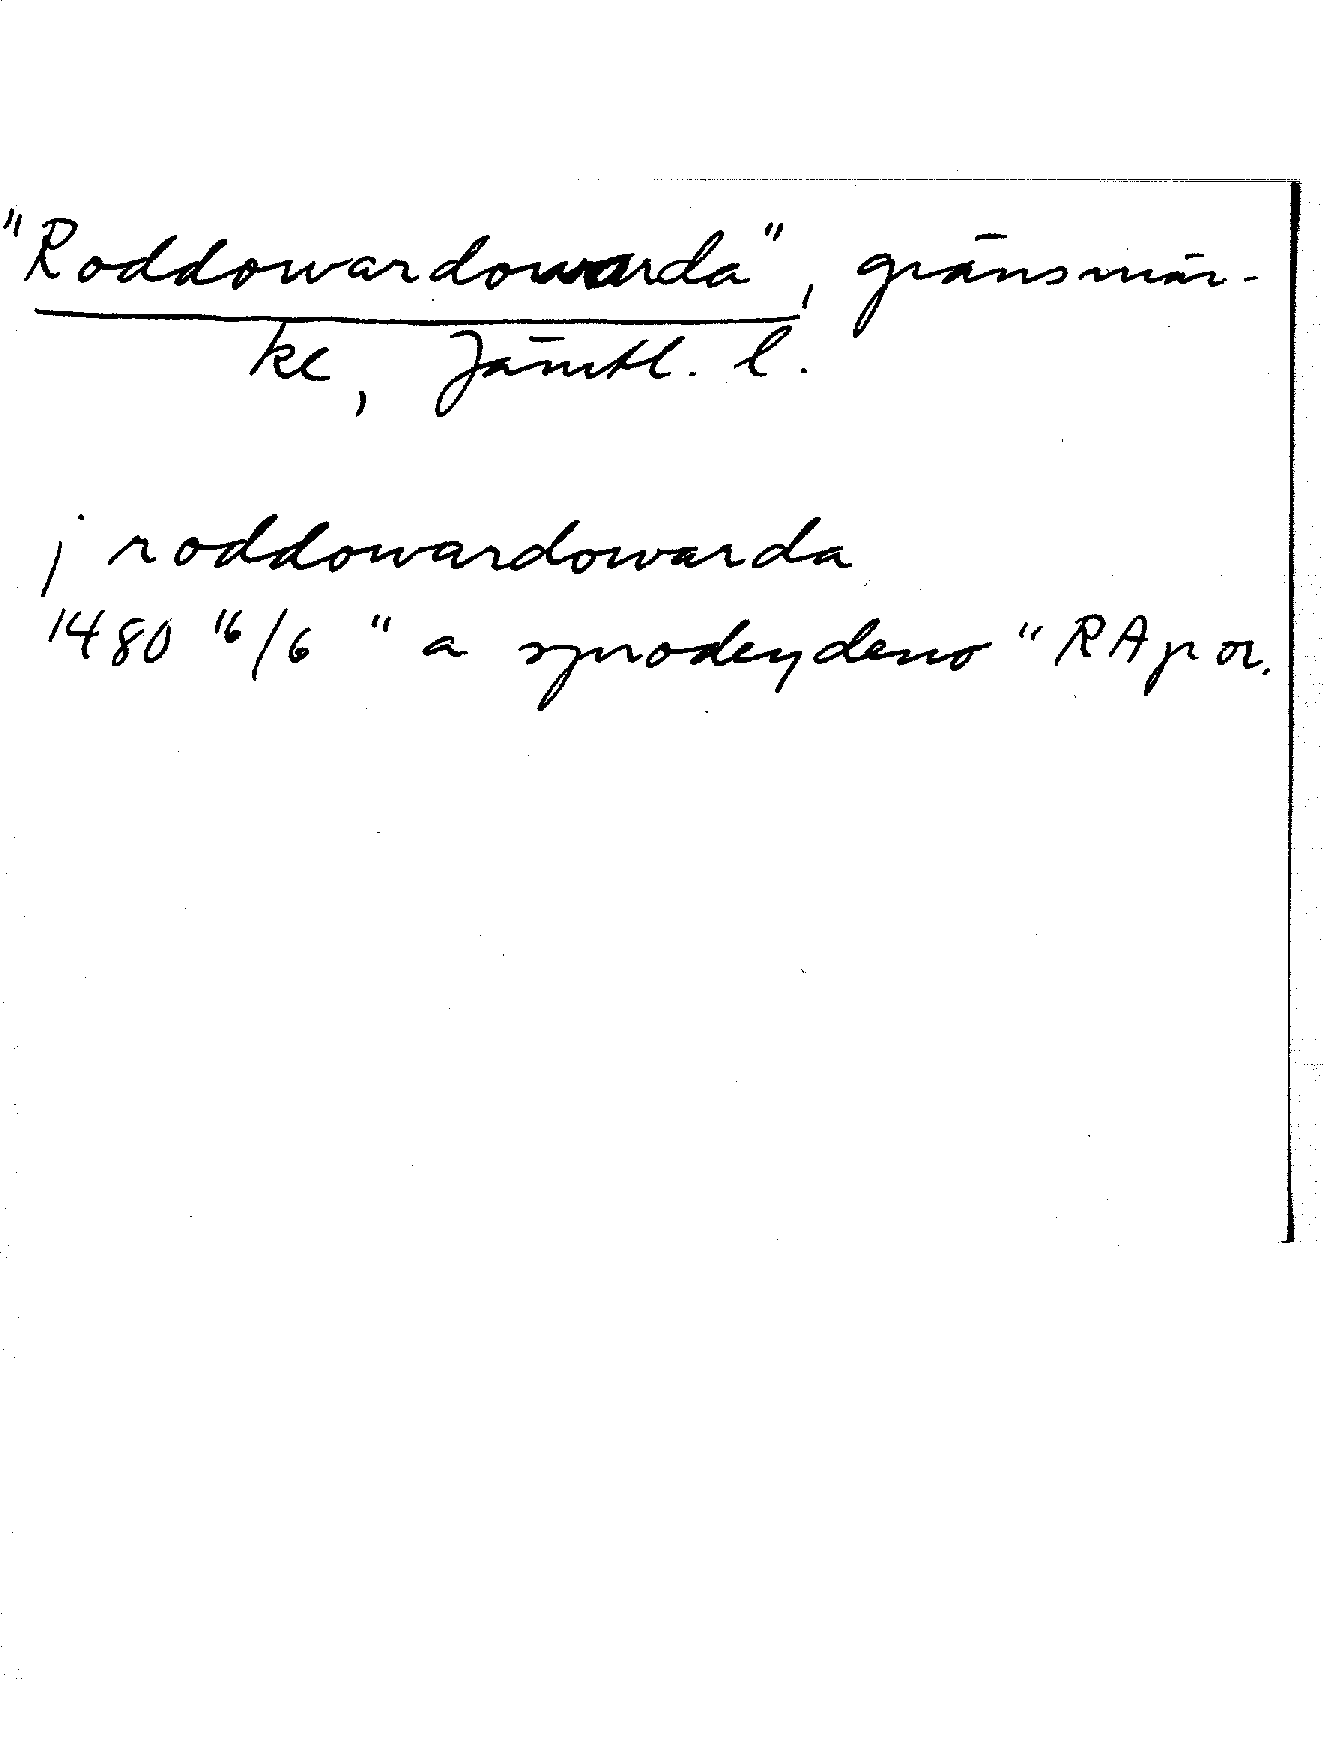 "Roddowardowarda", gränsmär-
ke, Jämtl. l.
j roddowardowarda
1480 16/6 "a sprodeydeno" RAp or.